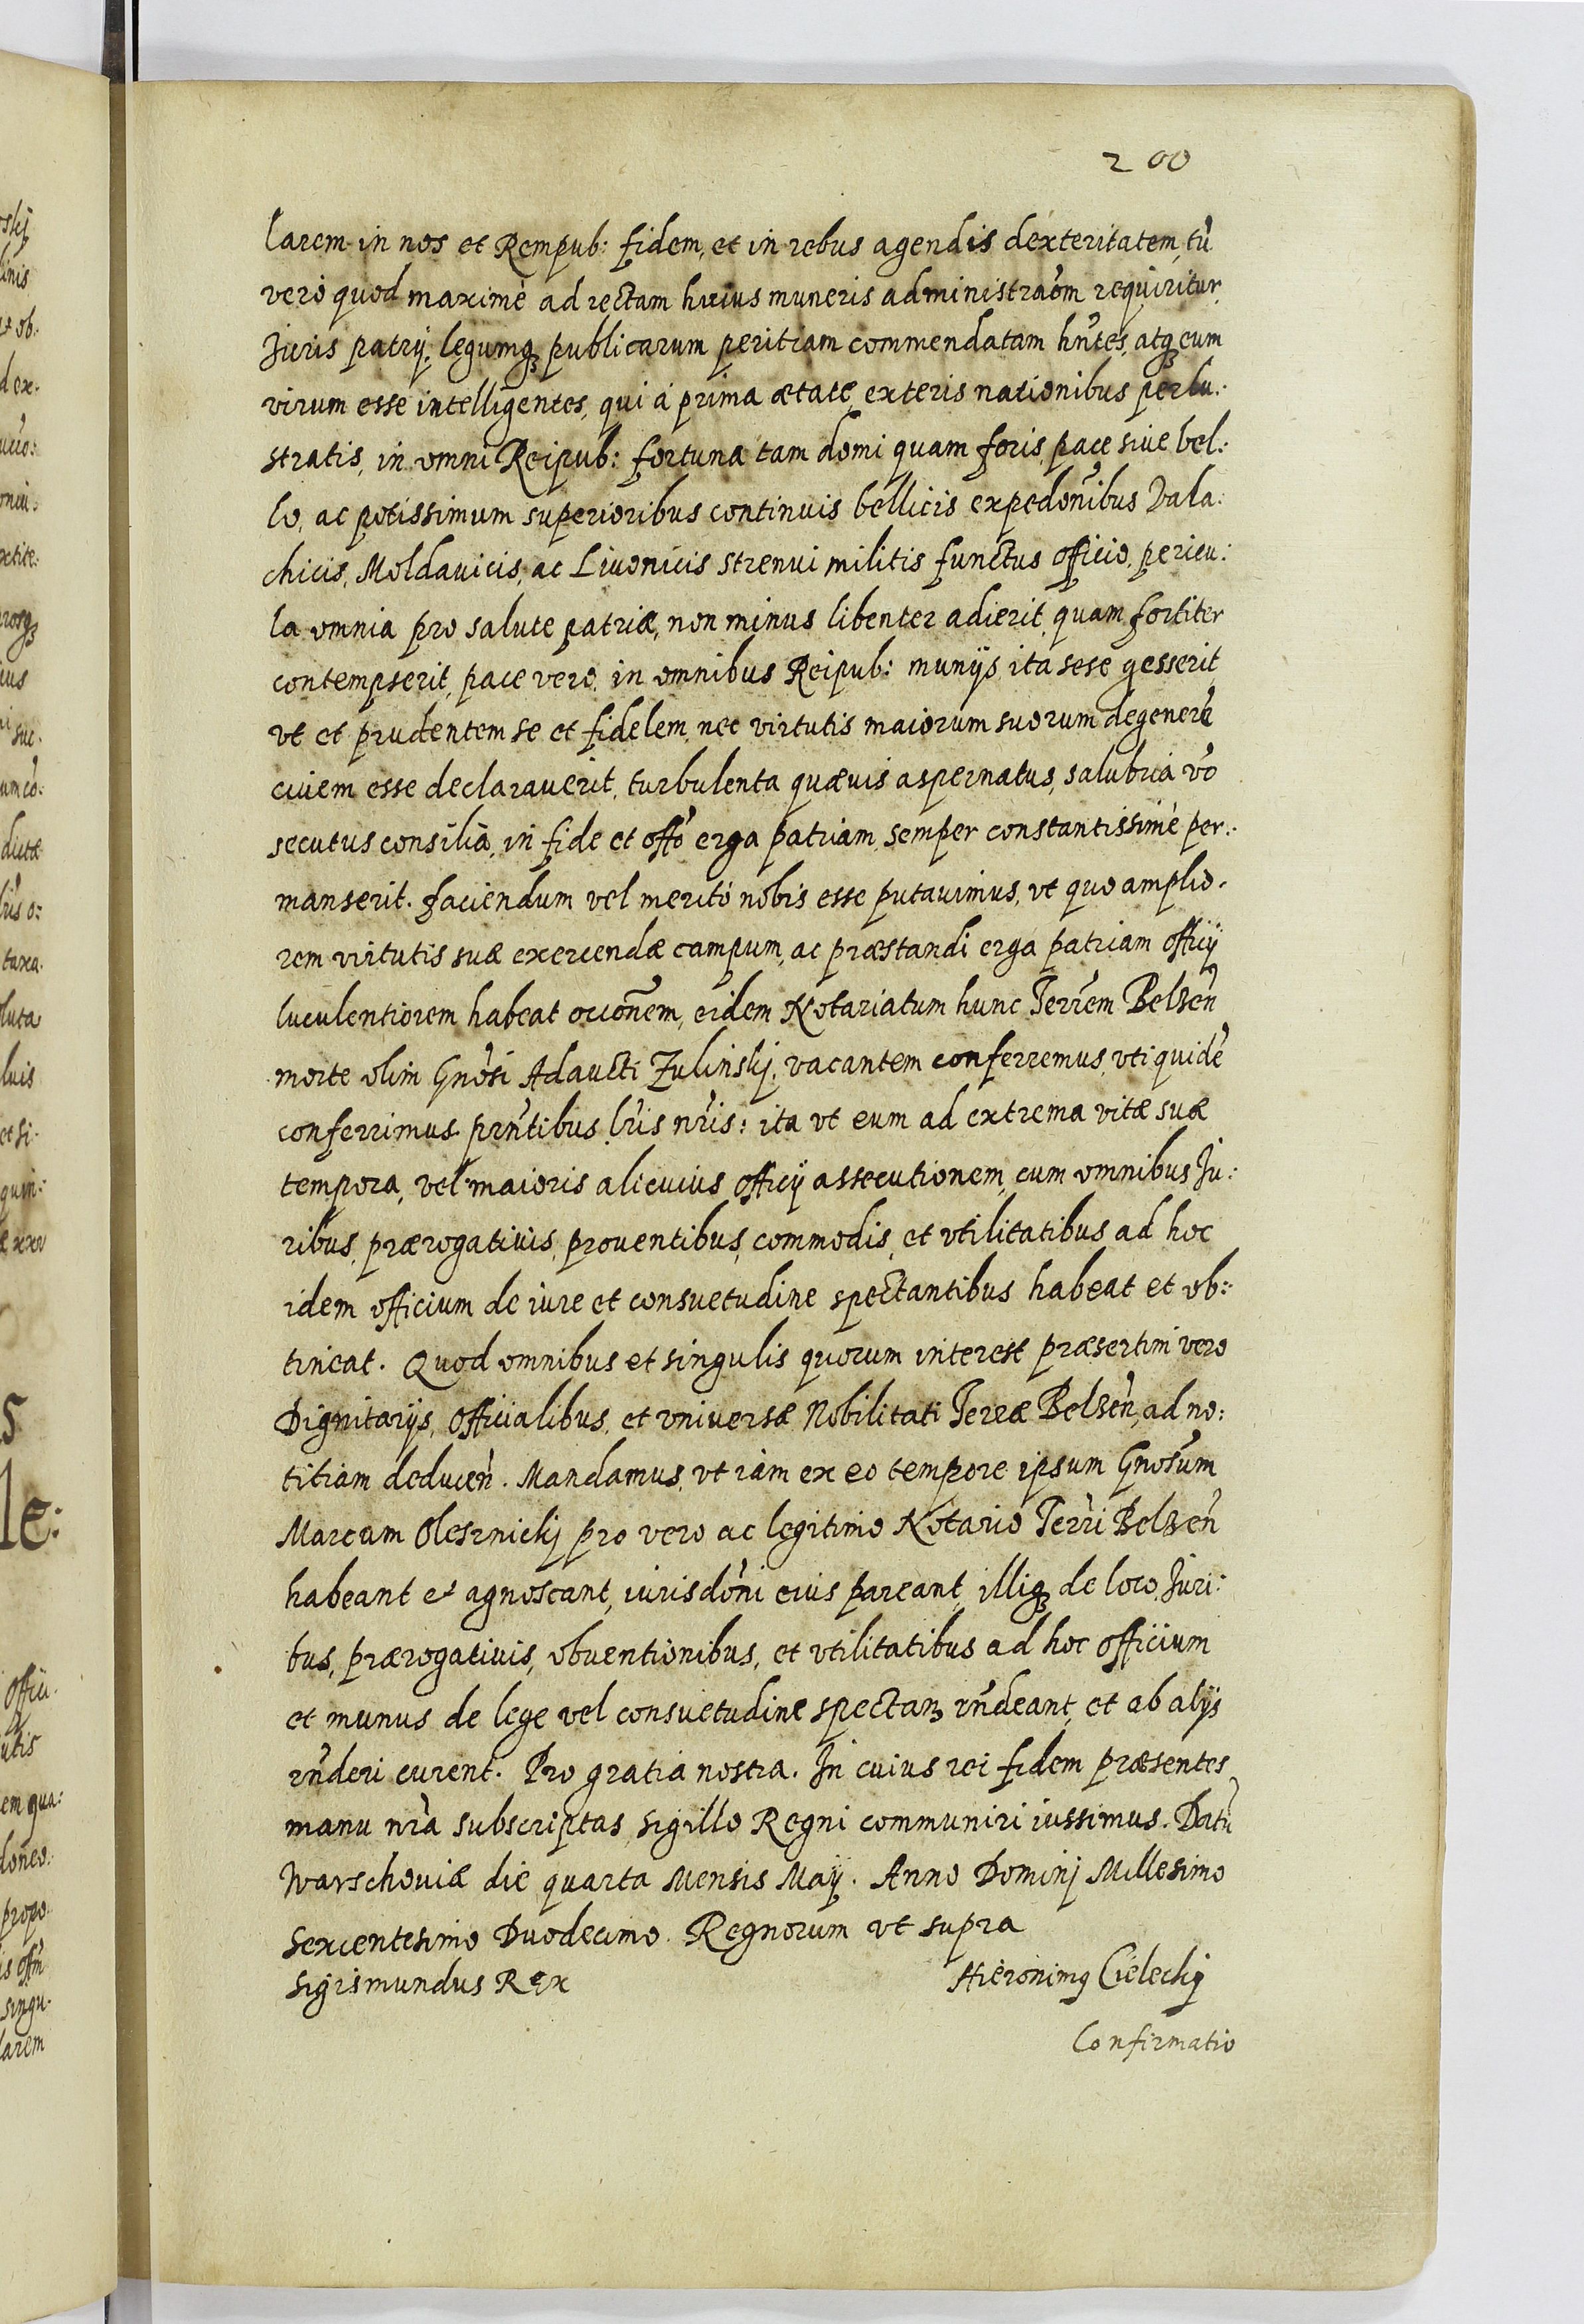 200
larem in nos et Rempub: fidem, et in rebus agendis dexteritatem, tū
vero quod maximè ad rectam huius muneris administraōm requiritur,
Iuris patrij, legumq publicarum peritiam commendatam hn̄tes, atq eum
virum esse intelligentes, qui à prima ætate, exteris nationibus perlu:
stratis, in omni Reipub: fortuna tam domi quam foris, pace sive bel:
lo, ac potissimum superioribus continuis bellicis expedōnibus Vala:
chicis, Moldavicis, ac Livonicis strenui militis functus officio, pericu:
la omnia pro salute patriæ, non minus libenter adierit, quam fortiter
contempserit, pace vero, in omnibus Reipub: munijs ita sese gesserit,
vt et prudentem se et fidelem, nec virtutis maiorum suorum degenerē
civem esse declaraverit, turbulenta quævis aspernatus, salubria vō
secutus consilia, in fide et offō erga patriam, semper constantissimè per:
manserit. faciendum vel meritò nobis esse putavimus, vt quo amplio:
rem virtutis suæ exercendæ campum, ac præstandi erga patriam officij
luculentiorem habeat occōnem, eidem Notariatum hunc Terrēm Belzēn
morte olim Gnōsi Adaucti Zulinskj, vacantem conferremus, vti quidē
conferrimus prn̄tibus lr̄is nr̄is: ita vt eum ad extrema vitæ suæ
tempora, vel maioris alicuius officij assecutionem, cum omnibus Iu:
ribus, prærogativis, proventibus, commodis, et vtilitatibus ad hoc
idem officium de iure et consuetudine spectantibus habeat et ob:
tineat. Quod omnibus et singulis quorum interest præsertim vero
Dignitarijs, Officialibus, et vniversæ Nobilitati Terræ Belzēn, ad no:
titiam deducēn. Mandamus, vt iam ex eo tempore ipsum Gnōsum
Marcum Olesznickj pro vero ac legitimo Notario Terrī Belzēn
habeant et agnoscant, iurisdōni eius pareant, illiq de loco, Iuri:
bus, prærogativis, obventionibus, et vtilitatibus ad hoc officium
et munus de lege vel consuetudine spectanz rn̄deant, et ab alijs
rn̄deri curent. Pro gratia nostra. In cuius rei fidem præsentes
manu nr̄a subscriptas, sigillo Regni communiri iussimus. Datū
Warschoviæ die quarta Mensis Maij. Anno Dominj Millesimo
Sexcentesimo Duodecimo. Regnorum vt supra
Sigismundus Rex
Hieronimq Cieleckij
Confirmatio